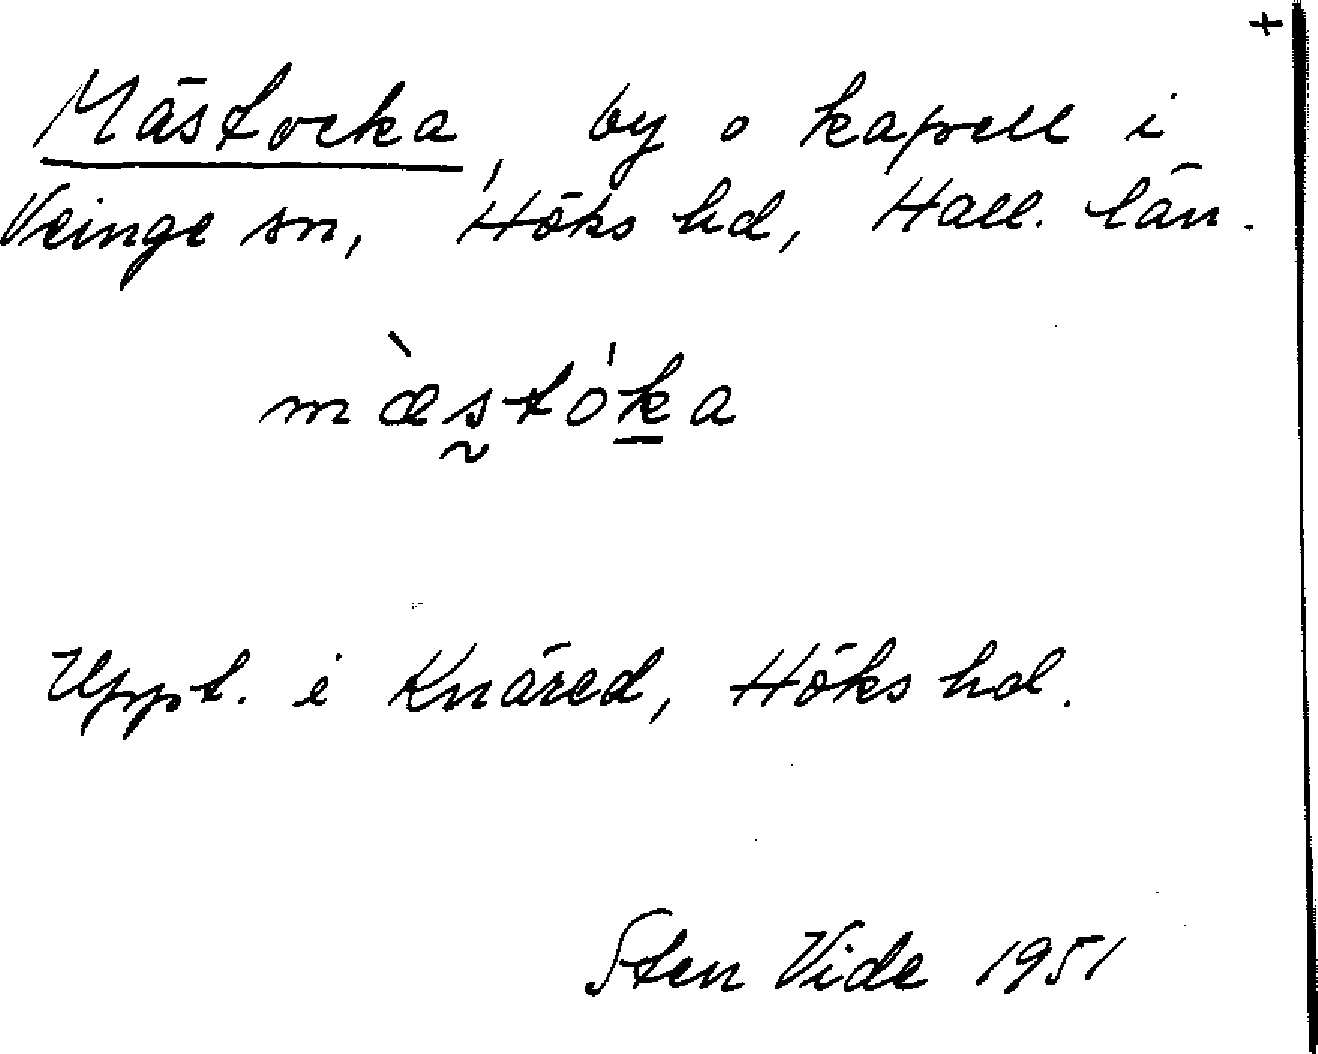 +
Mästocka, by o kapell i
Veinge sn, Höks hd, Hall. län.
mæ̀s̰tók̲a
Uppt. i Knäred, Höks hd.
Sten Vide 1951